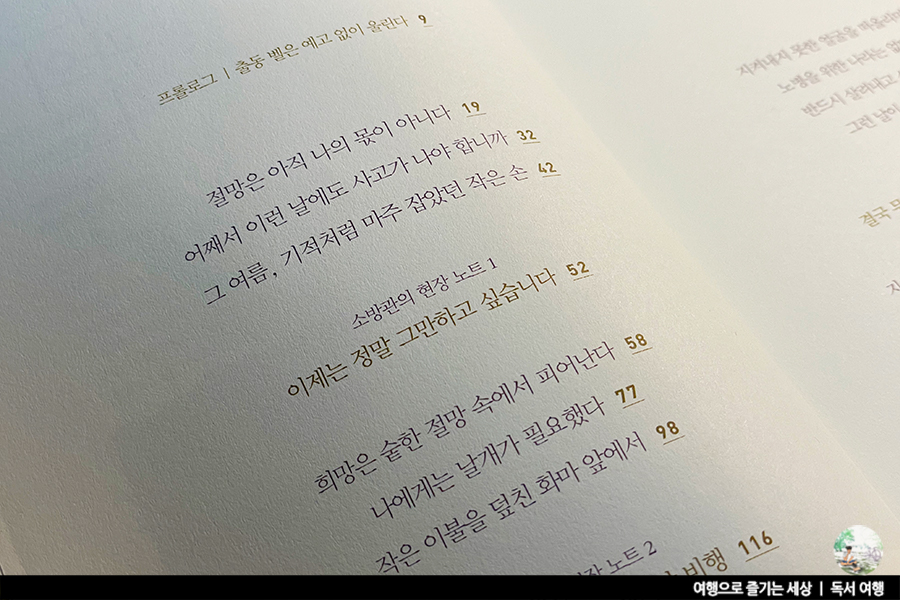 프롤로그 | 출동 벨은 예고 없이 울린다 9
절망은 아직 나의 몫이 아니다 19
어째서 이런 날에도 사고가 나야 합니까 32
그 여름, 기적처럼 마주 잡았던 작은 손 42
소방관의 현장 노트 1
이제는 정말 그만하고 싶습니다 52
희망은 숱한 절망 속에서 피어난다 58
나에게는 날개가 필요했다 77
작은 이불을 덮친 화마 앞에서 98
노트 2
비행 116
지켜내지 못한 얼굴을
노병을 위한 나라는
반드시 살려내고
그런 날이
결국
여행으로 즐기는 세상 | 독서 여행